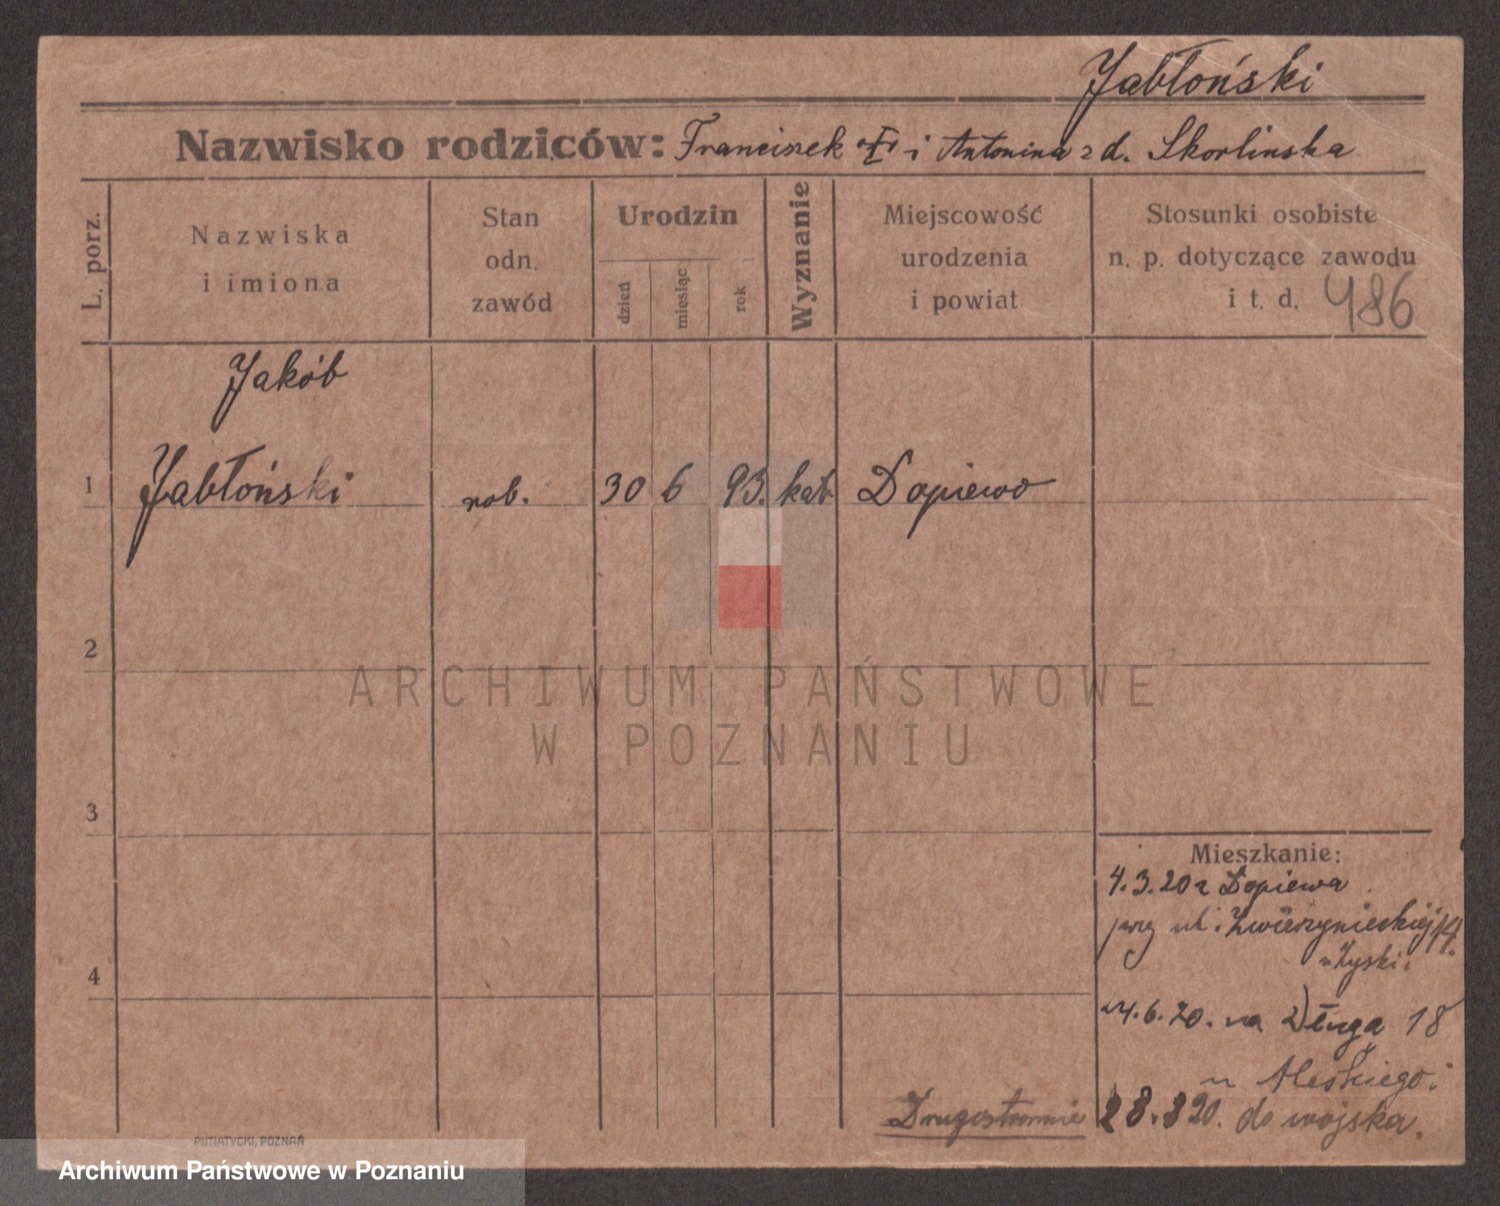 Jabłoński
Nazwisko rodziców: Franciszek i Antonina z d. Skorlinska
L. porz.
Nazwiska
i imiona
Stan
odn.
zawód
Urodzin
dzień
miesiąc
rok
Wyznanie
Miejscowość
urodzenia
i powiat
Stosunki osobiste
n. p. dotyczące zawodu
i t. d. 486
Jakób
1 Jabłoński rob. 30 6 93. kat Dopiewo
2
ARCHIWUM PAŃSTWOWE
W POZNANIU
3
Mieszkanie:
4.3.20 z Dopiewa
przy ul. Zwierzynieckiej 14.
u Zyski.
4
24.6.20. na Długą 18
u
Drugostronnie 28.8 20. do wojska.
PUTIATYCKI, POZNAŃ
Archiwum Państwowe w Poznaniu